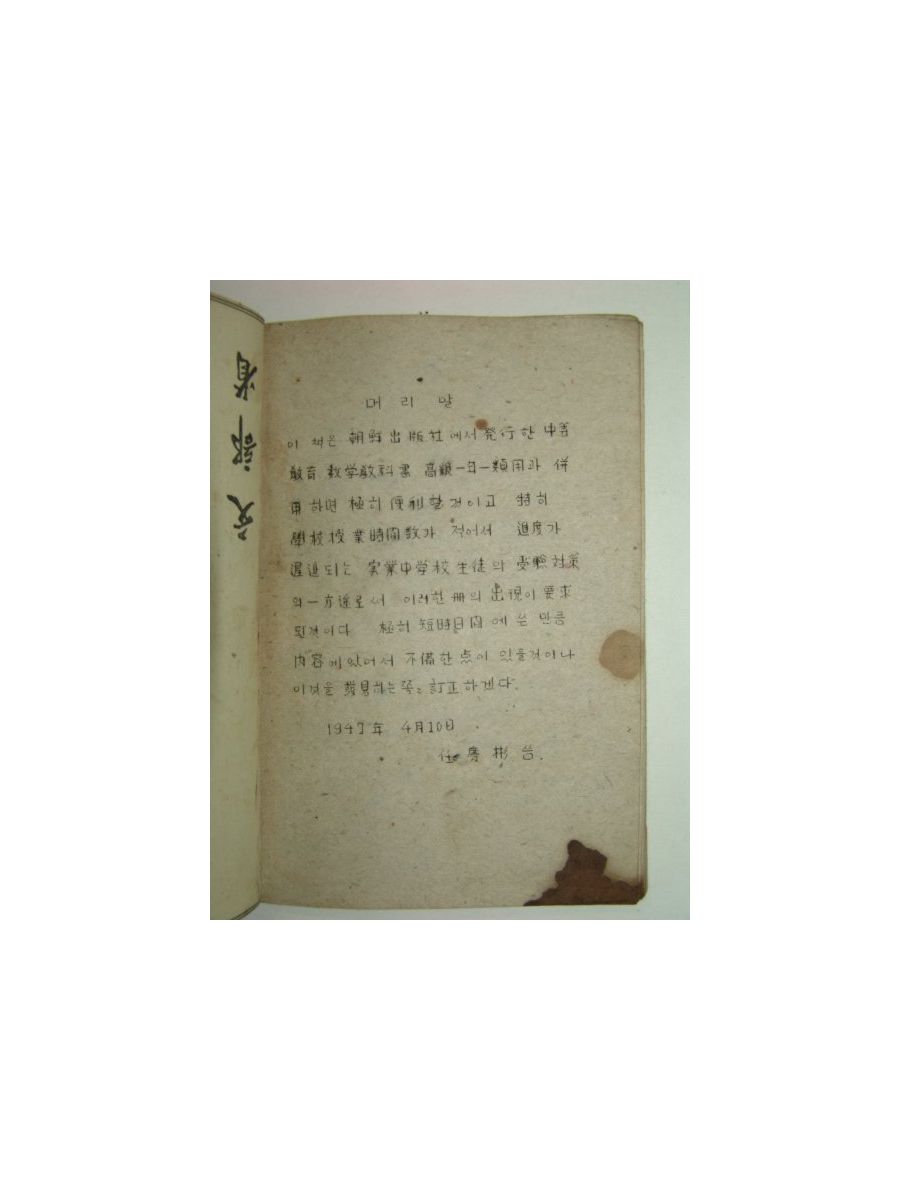 文部省
머리말
이 책은 朝鮮出版社에서 発行한 中等
敎育 数学敎科書 高級一年一類用과 併
用하면 極히 便利할것이고 特히
學校授業時間数가 적어서 進度가
遲進되는 実業中学校生徒의 受驗対策
의一方途로써 이러한 冊의 出現이 要求
된것이다 極히 短時日間에 쓴 만큼
内容에있어서 不備한点이 있을것이나
이것을 發見하는쪽쪽 訂正하겠다.
1947年 4月10日
任慶彬